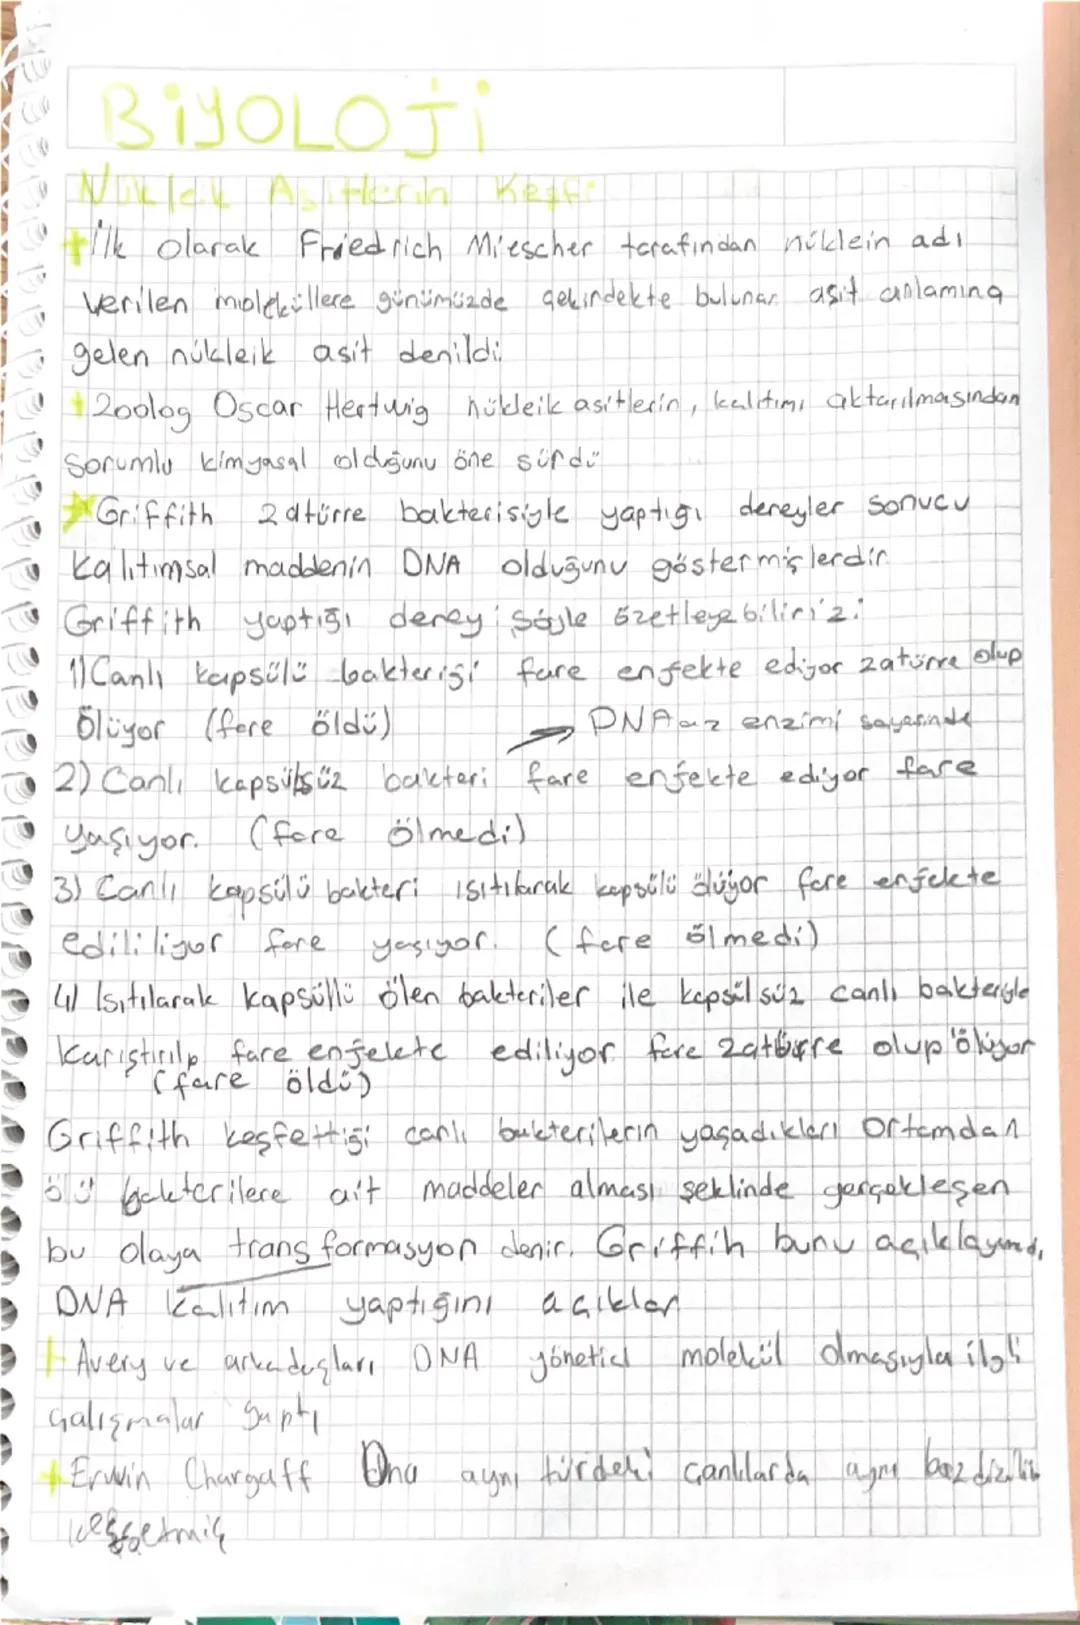 BİYOLOJİ
Nükleik Asitlerin Keşfi
+İlk olarak Friedrich Miescher tarafından nüklein adı
verilen moleküllere günümüzde çekirdekte bulunan asit anlamına
gelen nükleik asit denildi.
+ Zoolog Oscar Hertwig nükleik asitlerin, kalıtımı aktarılmasından
sorumlu kimyasal olduğunu öne sürdü
Griffith zatürre bakterisiyle yaptığı deneyler sonucu
kalıtımsal maddenin DNA olduğunu göstermişlerdir.
Griffith yaptığı deney şöyle özetleyebiliriz:
1) Canlı kapsülü bakterisi fare enfekte ediyor zatürre olup
ölüyor (fare öldü)
→ DNAaz enzimi sayesinde
2) Canlı kapsülsüz bakteri fare enfekte ediyor fare
yaşıyor. (fare ölmedi)
3) Canlı kapsülü bakteri ısıtılarak kapsülü ölüyor fare enfekte
edililiyor fare yaşıyor. (fare ölmedi)
4) Isıtılarak kapsüllü ölen bakteriler ile kapsülsüz canlı bakteriyle
karıştırılıp fare enfekte ediliyor fare zatürre olup ölüyor
(fare öldü)
Griffith keşfettiği canlı bakterilerin yaşadıkları ortamdan
ölü bakterilere ait maddeler alması şeklinde gerçekleşen
bu olaya transformasyon denir. Griffih bunu açıklayamadı,
DNA kalıtım yaptığını açıklar
+ Avery ve arkadaşları DNA yönetici molekül olmasıyla ilgili
çalışmalar yaptı
+ Erwin Chargaff Dna aynı türdeki canlılarda aynı baz dizilimi
keşfetmiş